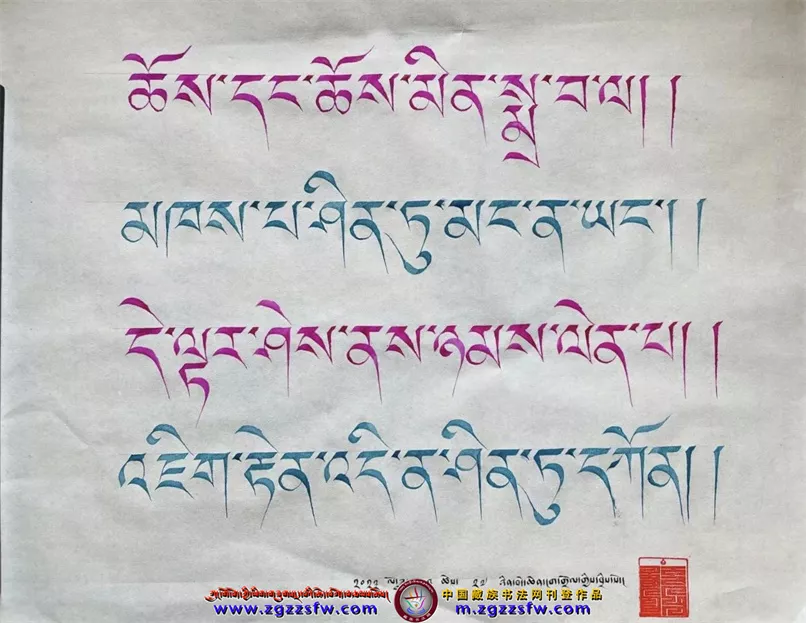 ཆོས་དང་ཆོས་མིན་སྨྲ་བ་ལ། །
མཁས་པ་ཤིན་ཏུ་མང་ན་ཡང་། །
དེ་ལྟར་ཤེས་ནས་ཉམས་ལེན་པ། །
འཇིག་རྟེན་འདི་ན་ཤིན་ཏུ་དཀོན། །
中国藏族书法网刊登作品
www.zgzzsfw.com m.zgzzsfw.com